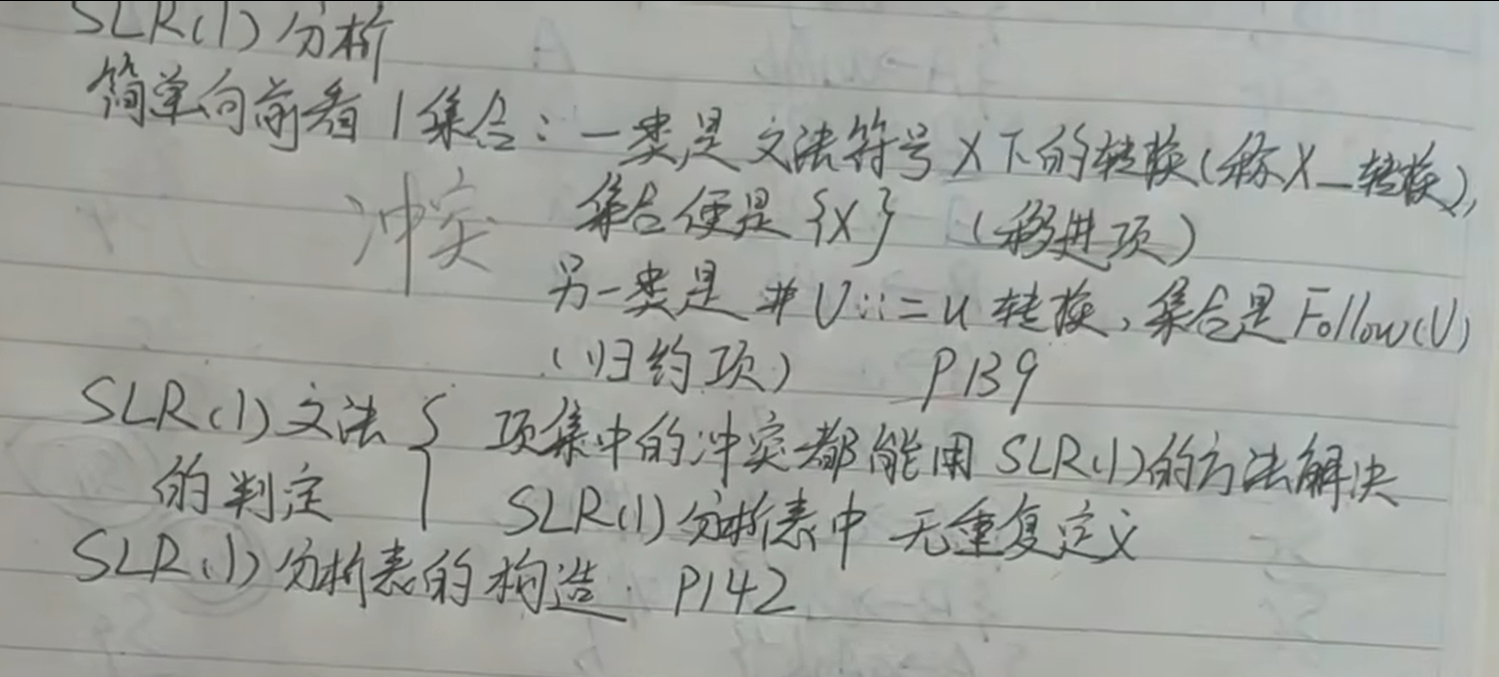 SLR(1)分析
简单向前看1集合：一类是文法符号X下的转换(称X_转换),
冲突 集合便是{X} (移进项)
另一类是#U::=u转换，集合是Follow(U)
(归约项) P139
SLR(1)文法{ 项集中的冲突都能用SLR(1)的方法解决
的判定 SLR(1)分析表中无重复定义
SLR(1)分析表的构造. P142